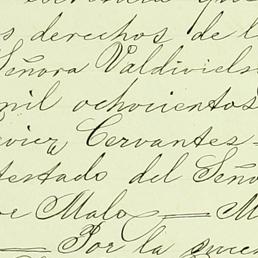 s derechos de l
Señora Valdiviels
mil ochocientos
avier Cervantes =
testado del Seño
re Malo — M
— Por la suce